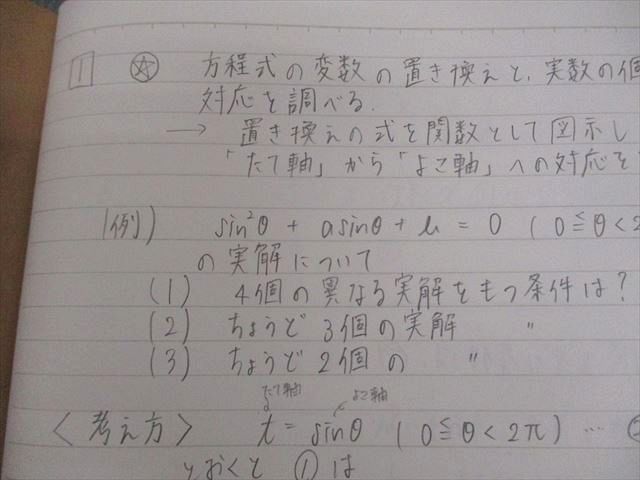 1 ☆ 方程式の変数の置き換えと、実数の個
対応を調べる.
→ 置き換えの式を関数として図示し
「たて軸」から「よこ軸」への対応を
(例) sin²θ + asinθ + b = 0 ( 0≦θ<2
の実解について
(1) 4個の異なる実解をもつ条件は?
(2) ちょうど3個の実解 〃
(3) ちょうど2個の 〃
たて軸 よこ軸
<考え方> t = sinθ ( 0≦θ<2π) … ②
とおくと ①は